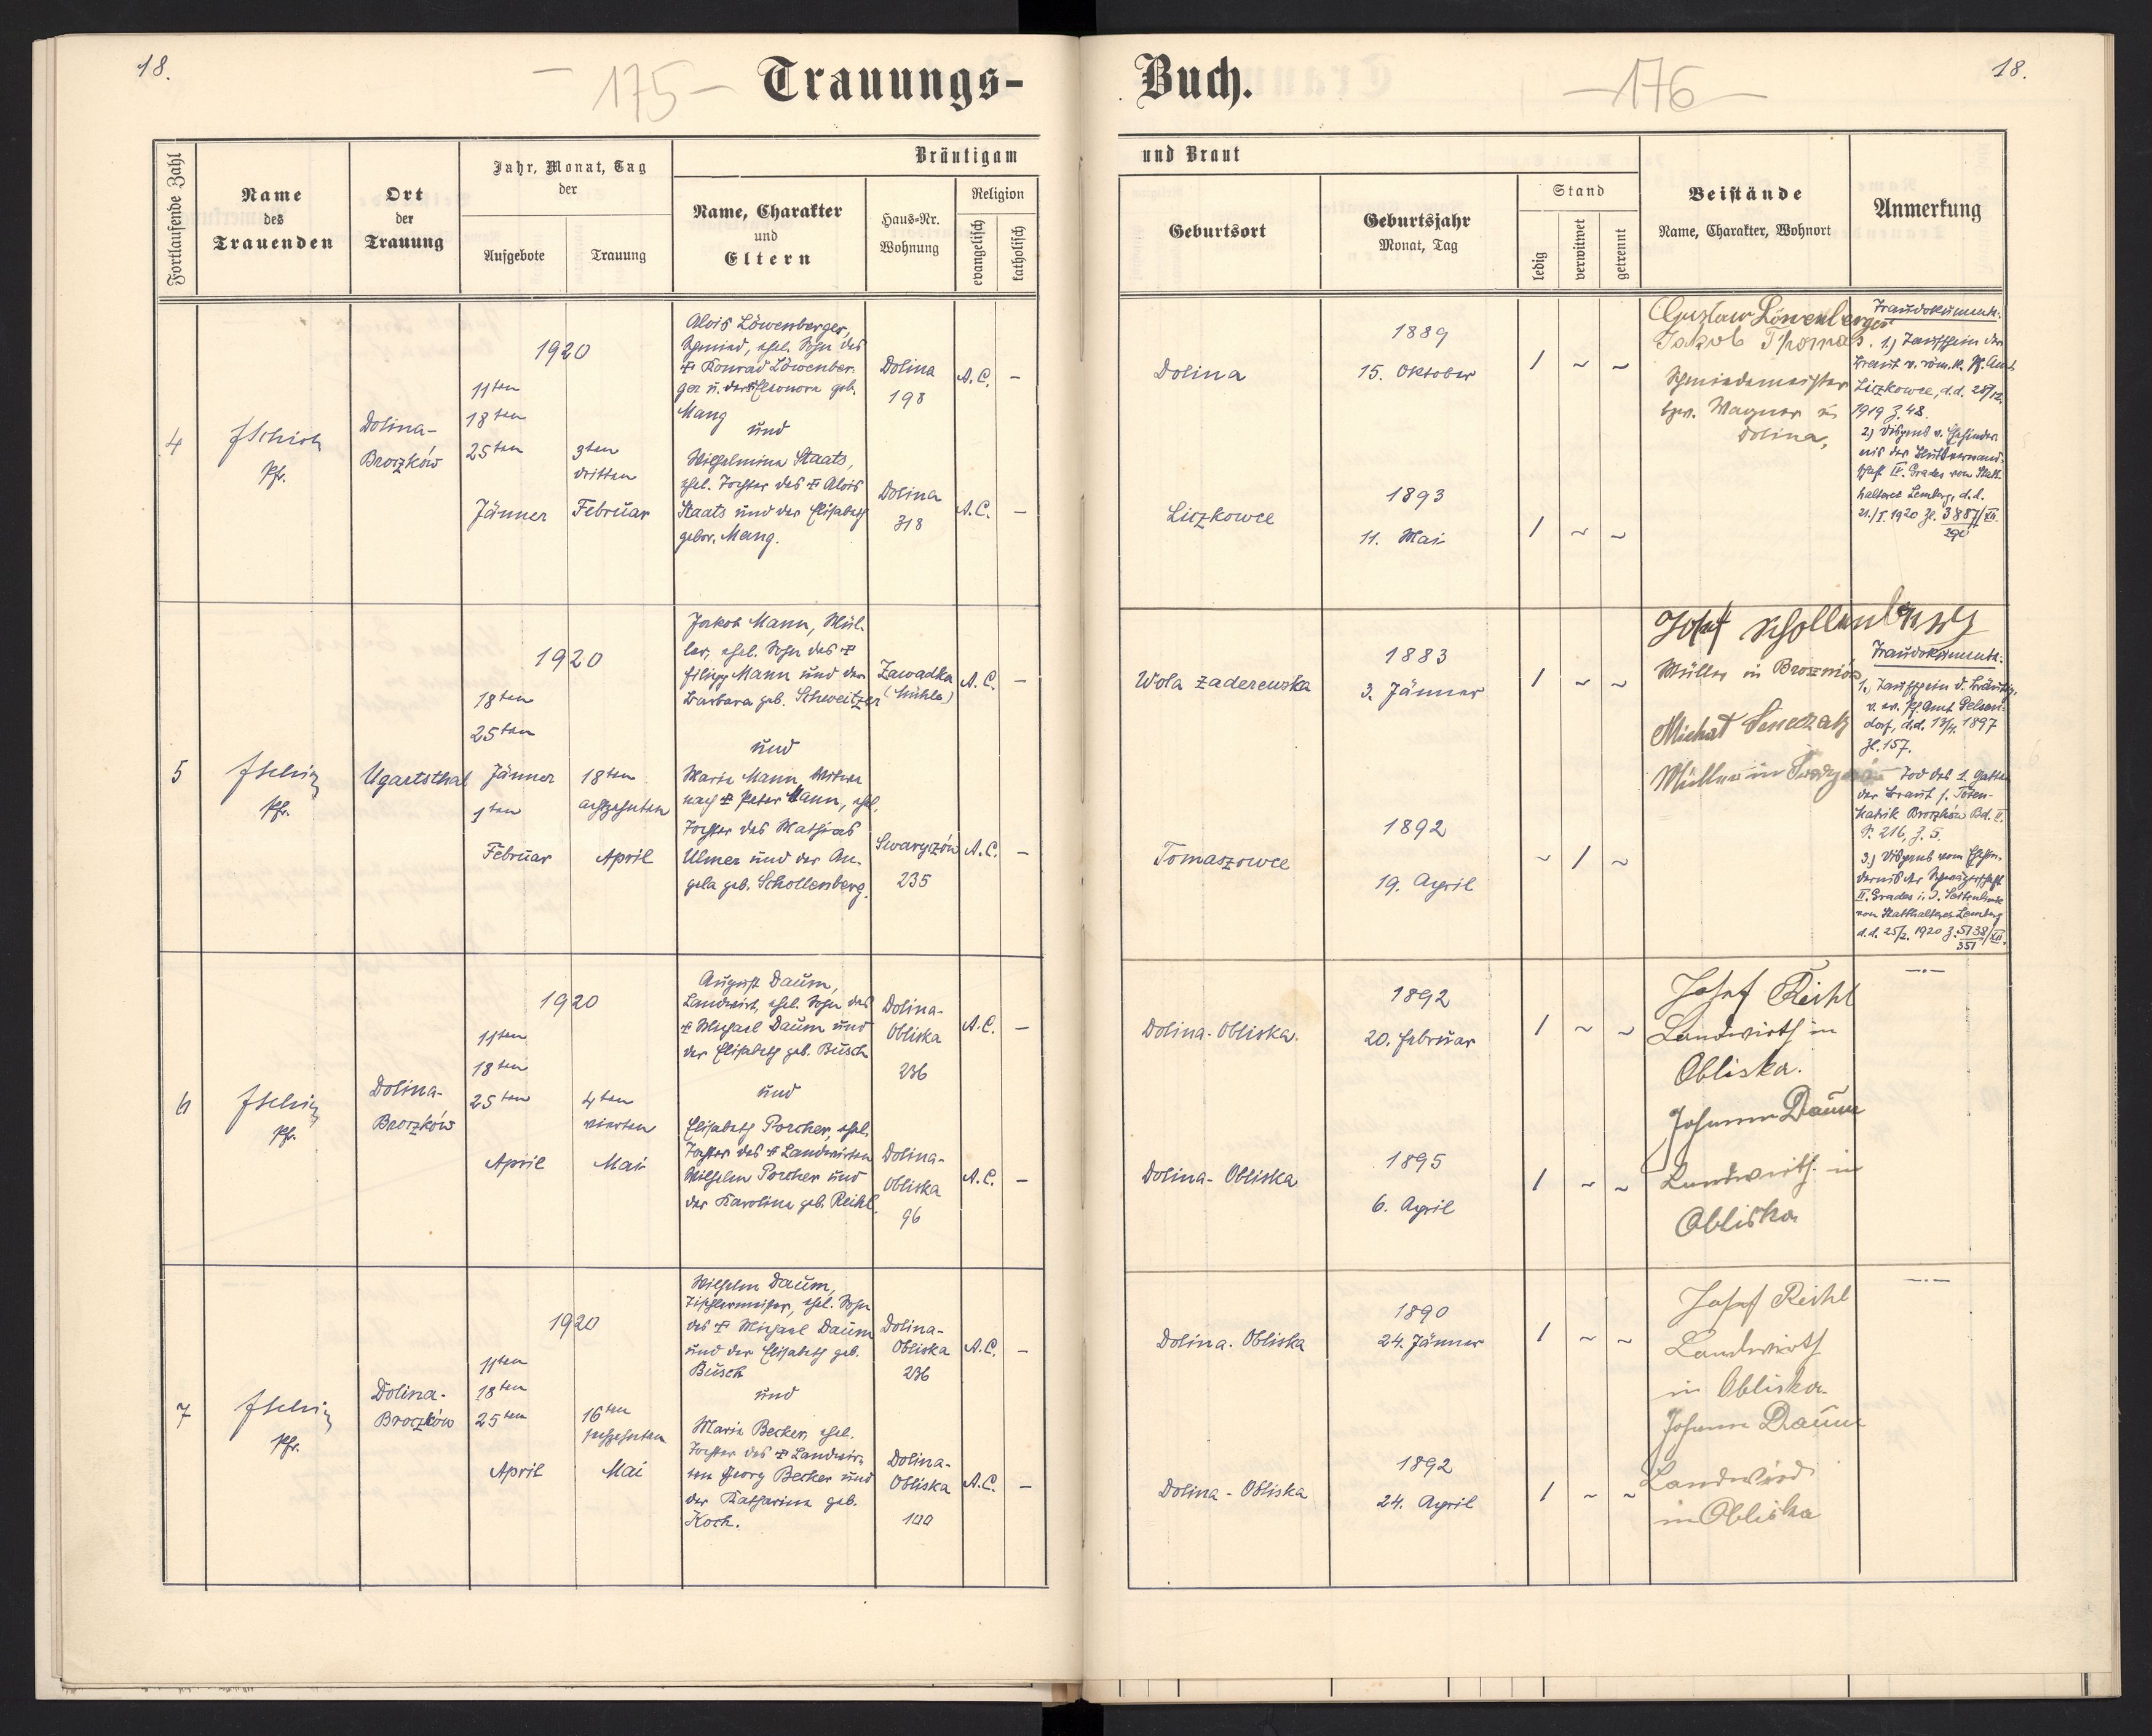 18.
– 175 –
Trauungs-
Fortlaufende Zahl
Name
des
Trauenden
Ort
der
Trauung
Jahr, Monat, Tag
der
Aufgebote
Trauung
Bräutigam
Name, Charakter
und
Eltern
Haus-Nr.
Wohnung
Religion
evangelisch
katholisch
4
Pfr.
Dolina-
Broczków
1920
11ten
18ten
25ten
Jänner
3ten
dritten
Februar
Alois Löwenberger,
Schmied, ehel. Sohn des
✝ Konrad Löwenber-
ger u. der ✝ Eleonora geb.
Mang
und
Wilhelmine Staats,
ehel. Tochter des ✝ Alois
Staats und der Elisabeth
gebor. Mang.
Dolina
198
Dolina
318
A.C. –
A.C. –
5
Pfr.
Ugartsthal
1920
18ten
25ten
Jänner
1ten
Februar
18ten
achtzehnten
April
Jakob Mann, Mül-
ler, ehel. Sohn des ✝
Filipp Mann und der
Barbara geb. Schweitzer
und
Marie Mann, Witwe
nach ✝ Peter Mann, ehel.
Tochter des Mathias
Ulmer und der An-
gela geb. Schollenberg.
Zawadka
(Mühle)
Swaryczów
235
A.C. –
A.C. –
6
Pfr.
Dolina-
Broczków
1920
11ten
18ten
25ten
April
4ten
vierten
Mai
August Daum,
Landwirt, ehel. Sohn des
✝ Michael Daum und
der Elisabeth geb. Busch
und
Elisabeth Porcher, ehel.
Tochter des ✝ Landwirten
Wilhelm Porcher und
der Karolina geb. Reichl.
Dolina-
Obliska
236
Dolina-
Obliska
96
A.C. –
A.C. –
7
Pfr.
Dolina-
Broczków
1920
11ten
18ten
25ten
April
16ten
sechzehnten
Mai
Wilhelm Daum,
Tischlermeister, ehel. Sohn
des ✝ Michael Daum
und der Elisabeth geb.
Busch
und
Marie Becker, ehel.
Tochter des ✝ Landwir-
ten Georg Becker und
der Katharina geb.
Koch.
Dolina-
Obliska
236
Dolina-
Obliska
100
A.C. –
A.C. –
Buch.
– 176 –
18.
und Braut
Geburtsort
Geburtsjahr
Monat, Tag
Stand
ledig
verwitwet
getrennt
Beistände
Name, Charakter, Wohnort
Anmerkung
Dolina
1889
15. Oktober
1 ~ ~
Liczkowce
1893
11. Mai
1 ~ ~
Gustaw Löwenberger
Jakob Thomas.
Schmiedemeister
bzw. Wagner in
Dolina,
Traudokumente:
1.) Taufschein der
Braut v. röm. k. Pf. Amt
Liczkowce, d.d. 28/12.
1919 Z. 48.
2.) Dispens v. Ehehinder-
nis der Blutsverwand-
schaft IV. Grades vom Statt-
halterei Lemberg, d.d.
21./I. 1920 Zl. 3887/XII.
Wola Zaderewska
1883
3. Jänner
1 ~ ~
Tomaszowce
1892
19. April
~ 1 ~
Josef Schollenberg
Müller in
Müller in
Traudokumente:
1.) Taufschein d. Bräutig.
v. ev. Pf. Amt Gelsen-
dorf, d.d. 1897
Zl. 157.
Tod des 1. Gatten
der Braut s. Toten-
Matrik Broczków Bd. II.
S. 216, Z. 5.
3.) Dispens vom Ehehin-
dernis der Schwägerschaft
II. Grades i. d. Seitenlinie
von Statthalterei Lemberg
d.d. 25/2. 1920 Z. 5138/XII.
351
Dolina-Obliska.
1892
20. Februar
1 ~ ~
Dolina-Obliska
1895
6. April
1 ~ ~
Josef Reichl
Landwirth in
Obliska.
Johann Daum
Landwirth in
Obliska
—·—
Dolina-Obliska
1890
24. Jänner
1 ~ ~
Dolina-Obliska
1892
24. April
1 ~ ~
Josef Reichl
Landwirth
in Obliska
Johann Daum
Landwird
in Obliska
—·—